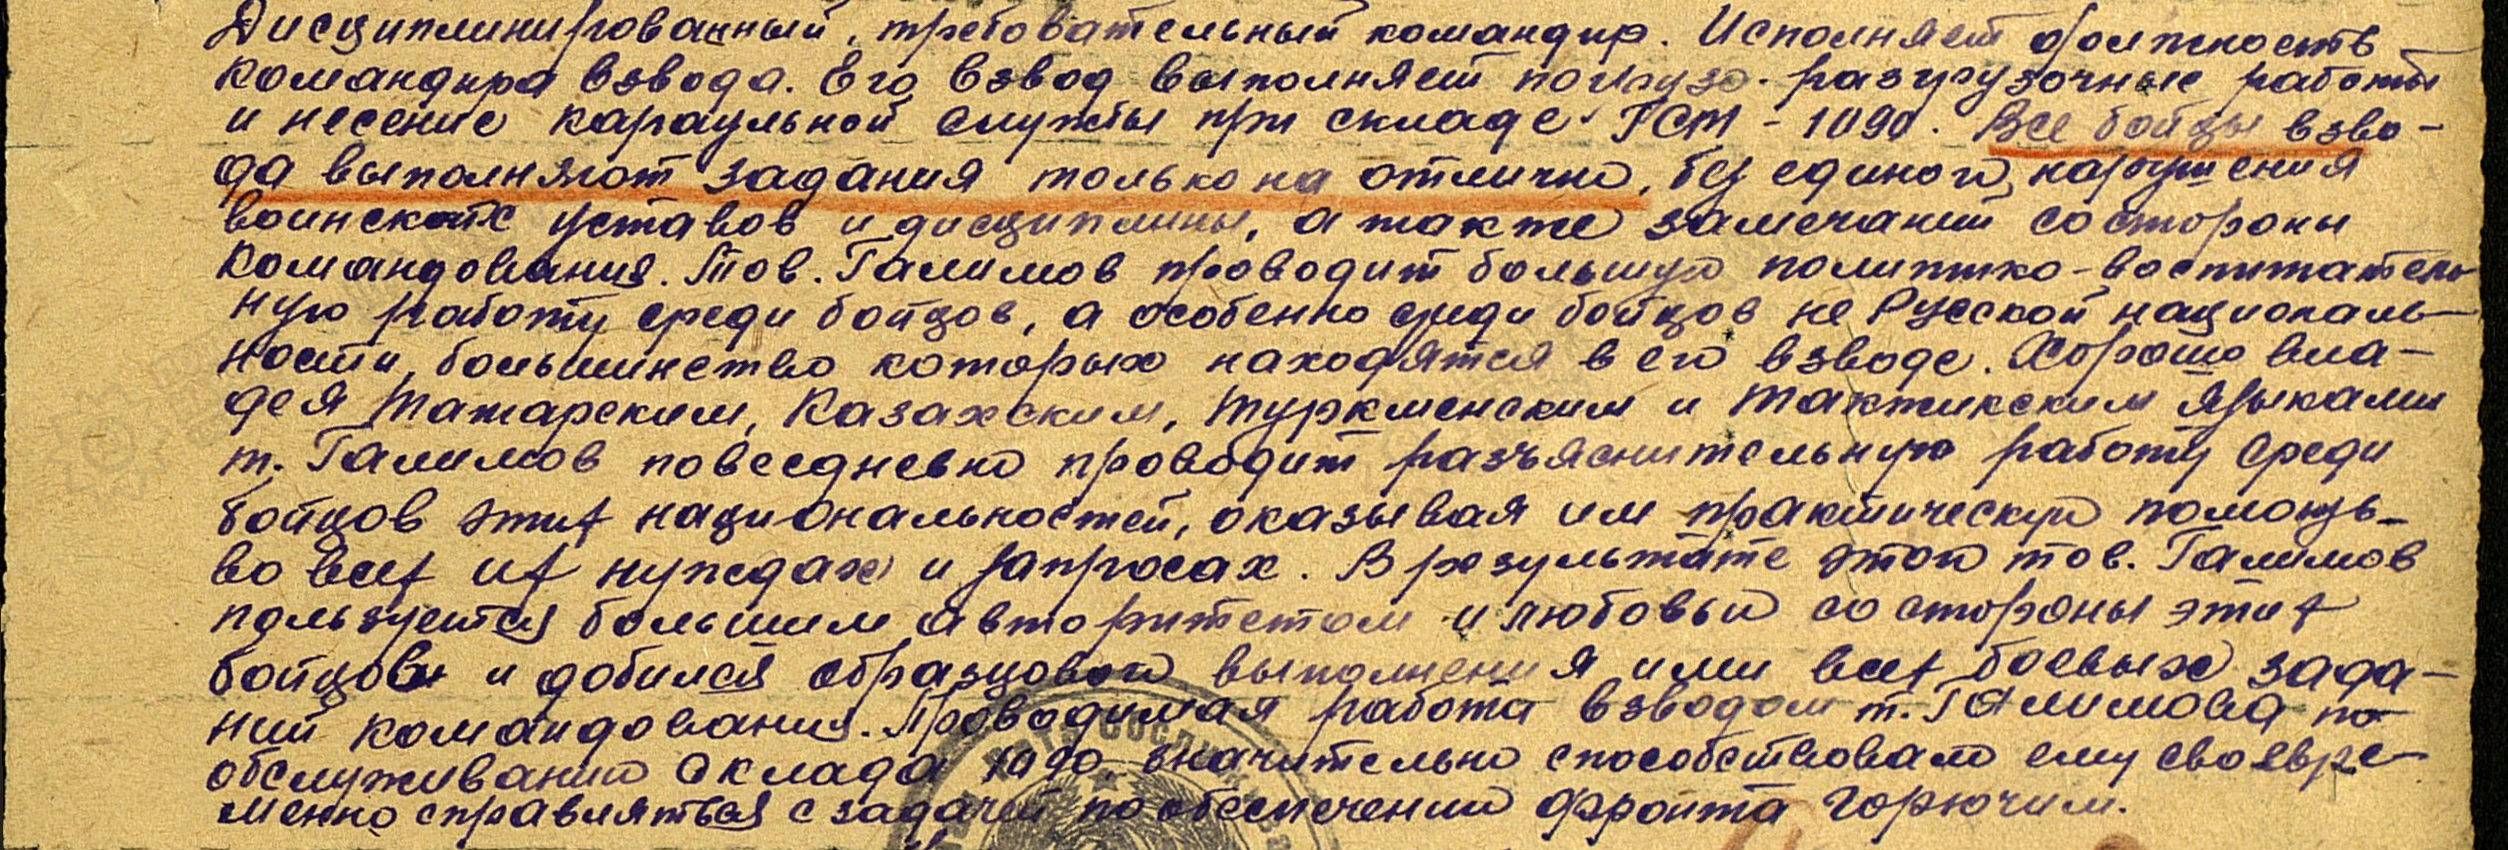 Дисциплинированный, требовательный командир. Исполняет должность
командира взвода. Его взвод выполняет погрузо-разгрузочные работы
и несение караульной службы при складе ГСМ - 1090. Все бойцы взво-
да выполняют задания только на отлично, без единого нарушения
воинских уставов и дисциплины, а также замечаний со стороны
командования. Тов. Галимов проводит большую политико-воспитатель
ную работу среди бойцов, а особенно среди бойцов не Русской националь-
ности, большинство которых находятся в его взводе. Хорошо вла-
дея татарским, Казахским, туркменским и языками
т. Галимов повседневно проводит разъяснительную работу среди
бойцов этих национальностей, оказывая им практическую помощь
во всех их нуждах и запросах. В результате этого тов. Галимов
пользуется большим авторитетом и любовью со стороны этих
бойцов и добился образцового выполнения ими всех боевых зада-
ний командования. Проводимая работа взводом т. Галимова по
обслуживанию склада 1090 значительно способствовало ему своевре-
менно справляться с задачей по обеспечению фронта горючим.